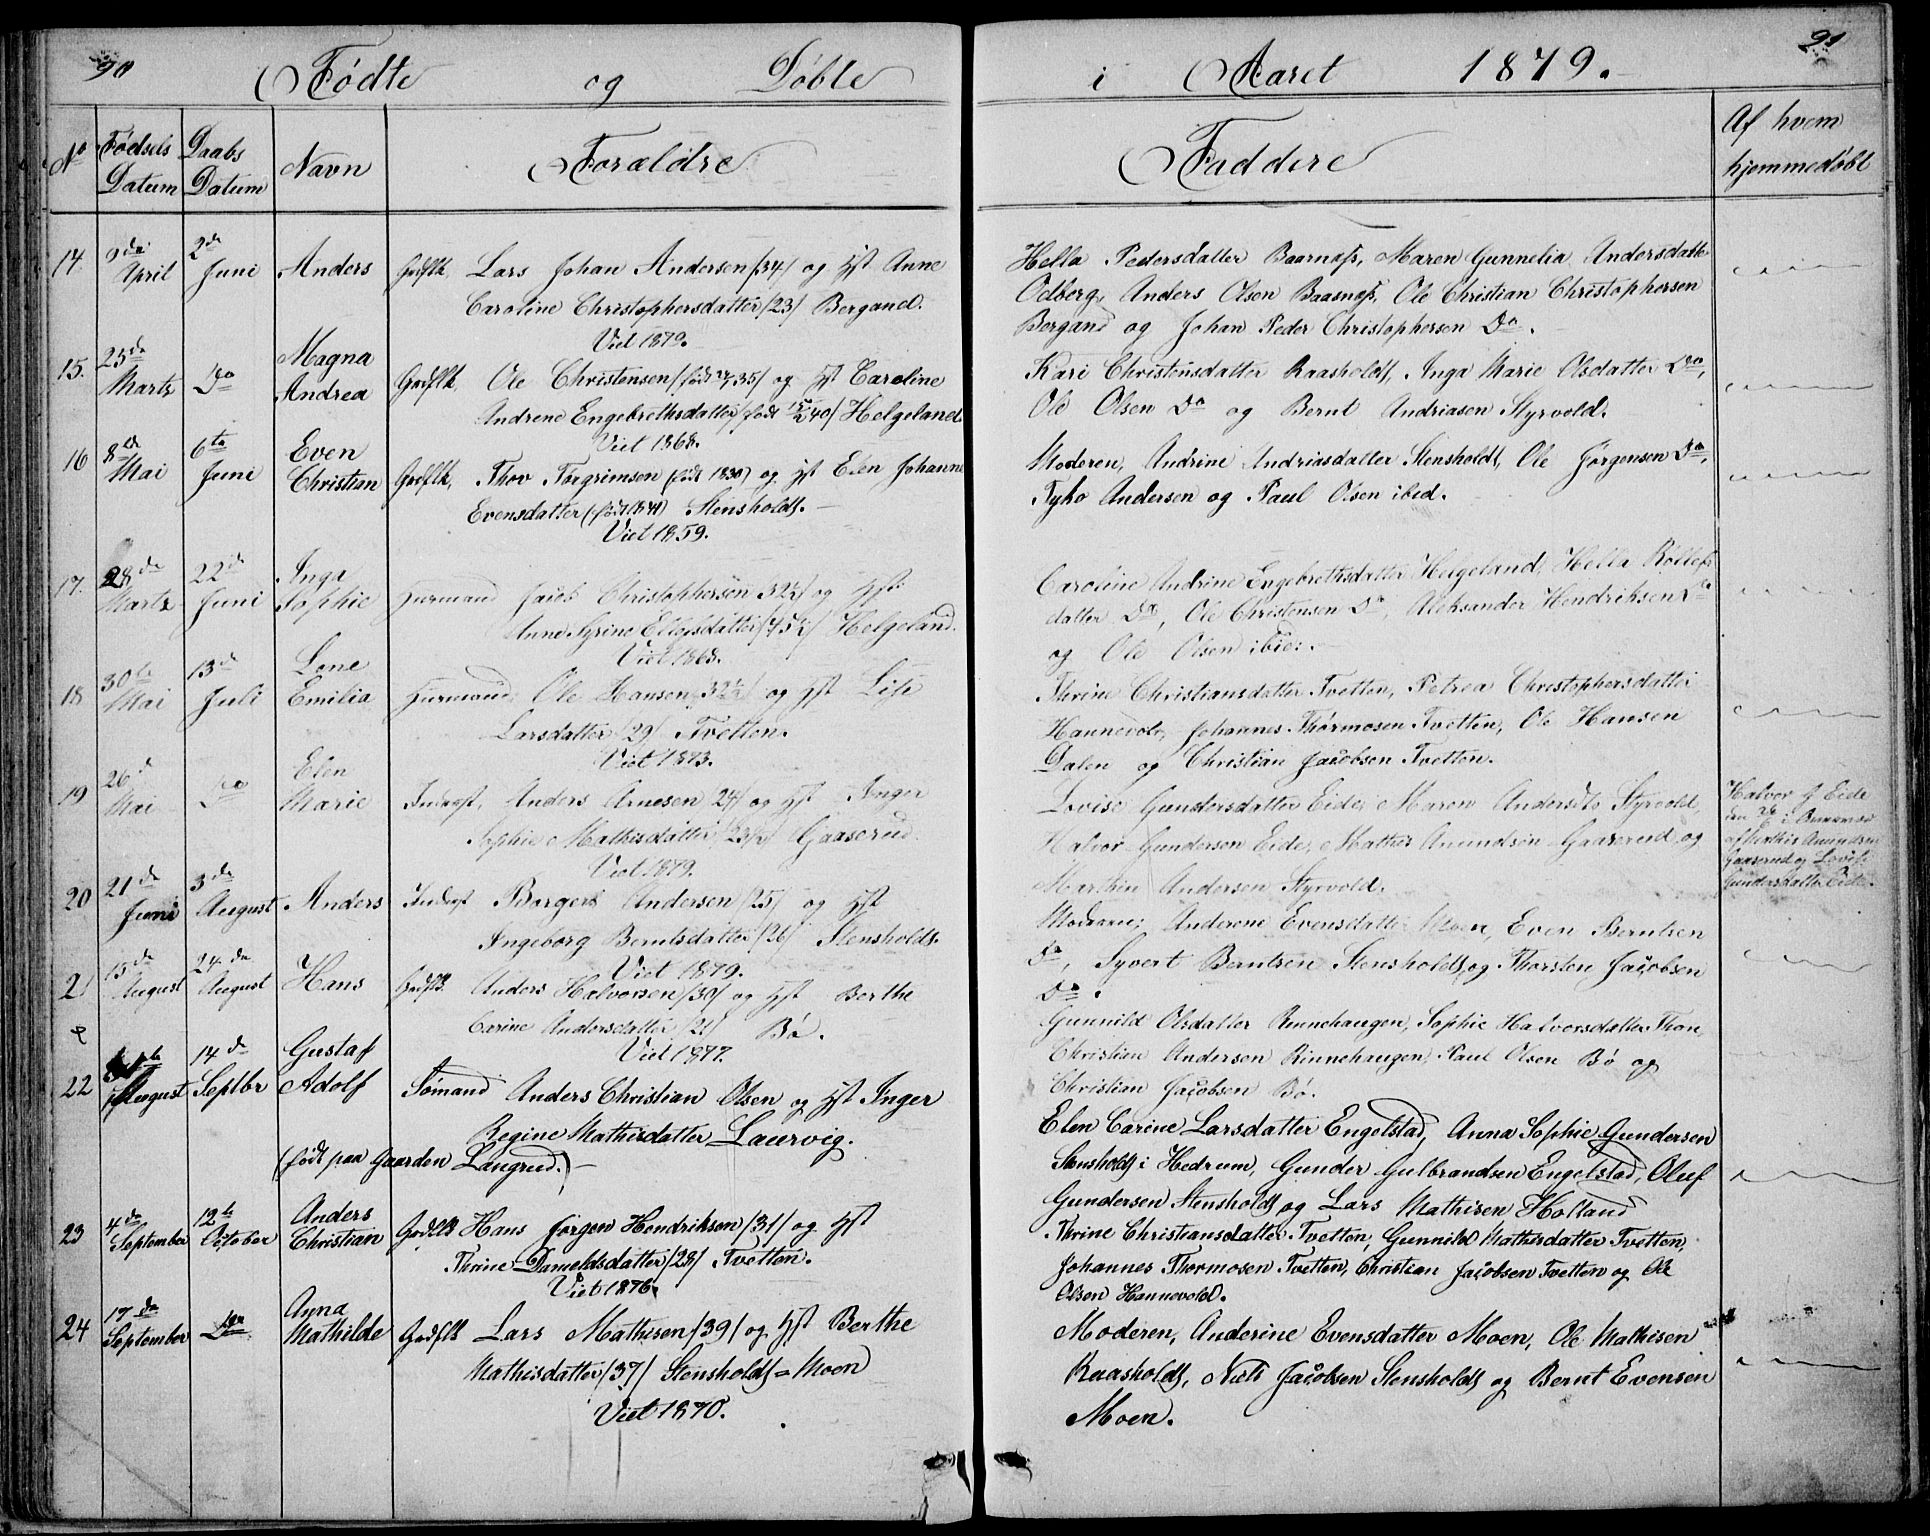 90
Fødte og Døbte
Nº Fødsels Datum Daabs Datum Navn Forældre
14. 9de April 2de Juni Anders Grdflk. Lars Johan Andersen /34/ og Hst Anne
Caroline Christophersdatter /23/ Bergand.
Viet 1879.
15. 25de Martz Do Magna Andrea Grdflk. Ole Christensen /født 35/ og Hst Caroline
Andrene Engebrethsdatter /født 40/ Helgeland.
Viet 1868.
16 8de Mai 6te Juni Even Christian Grdflk. Thov Torgrimsen (født 1830) og Hst Elen Johanne
Evensdatter (født 1841) Stensholdt.
Viet 1859.
17. 28de Martz 22de Juni Inga Sophie Huusmand Jacob Christophersen 32½/ og Hst
Anne Helgeland.
Viet 1868.
18 30te Mai 13de Juli Lone Emilia Huusmand Ole Hansen 32½/ og Hst Lise
Larsdatter /29/ Tvetten.
Viet 1873.
19 26de Mai Do Elen Marie Inderst, Anders Arnesen 24/ og Hst Inger
Sophie Mathisdatter 23½/ Gaaserud.
Viet 1879.
20 21de Juni 3de August Anders Inderst Borger Andersen /25/ og Hst
Ingeborg Berntsdatter /26/ Stensholdt.
Viet 1879.
21 15de August 24de August Hans Grdflk. Anders Halvorsen /30/ og Hst Berthe
Carine Andersdatter /21/ Bø.
Viet 1877.
22 31te August 14de Septbr Gustaf Adolf Sømand Anders Christian Olsen og Hst Inger
Regine Mathisdatter Laurvig.
(født paa Gaarden Langrud.)
23 4de September 12te October Anders Christian Grdflk Hans Jørgen Hendriksen /31/ og Hst
Thrine Danieldsdatter /28/ Tvetten.
Viet 1876.
24 17de September Do Anna Mathilde Grdflk Lars Mathisen /39/ og Hst Berthe
Mathisdatter /37/ Stensholdt=Moen
Viet 1870.
91
i Aaret 1879.
Faddere Af hvem hjemmedøbt
Hella Pedersdatter Baarnæs, Maren Gunnelia Andersdatter
Odberg, Anders Olsen Baasnæs, Ole Christian Christophersen
Bergand og Johan Peder Christophersen Do.
Kari Christensdatter Raasholdt, Inga Marie Olsdatter Do,
Ole Olsen Do og Bernt Andriasen Styrvold.
Moderen, Andrine Andriasdatter Stensholdt, Ole Jørgensen Do,
Tyko Andersen og Paul Olsen ibid.
Caroline Andrine Engebrethsdatter Helgeland, Hella Rollefs
datter Do, Ole Christensen Do, Aleksander Hendriksen Do
og Ole Olsen ibid.
Thrine Christiansdatter Tvetten, Petrea Christophersdatter
Hannevold, Johannes Thormosen Tvetten, Ole Hansen
Dalen og Christian Jacobsen Tvetten.
Lovise Gundersdatter Eide, Maren Andersdtr Styrvold,
Halvor Gundersen Eide, Mathis Anundsen Gaaserud og
Marthin Andersen Styrvold.
Halvor G Eide
den
af Mathis Anundsen
Gaaserud og Lovise
Gundersdatter Eide.
Moderen, Anderine Evensdatter Moen, Even Berntsen
Do, Syvert Berntsen Stensholdt og Thorsten Jacobsen
Do.
Gunnild Olsdatter Rinnehaugen, Sophie Halvorsdatter Thon,
Christian Andersen Rinnehaugen, Paul Olsen Bø og
Christian Jacobsen Bø.
Elen Carine Larsdatter Engelstad, Anna Sophie Gundersen
Stensholdt i Hedrum, Gunder Gulbrandsen Engelstad, Oluf
Gundersen Stensholdt og Lars Mathisen Holland
Thrine Christiansdatter Tvetten, Gunnild Mathisdatter Tvetten,
Johannes Thormosen Tvetten, Christian Jacobsen Tvetten og Ole
Olsen Hannevold.
Moderen, Anderine Evensdatter Moen, Ole Mathisen
Raasholdt, Niels Jacobsen Stensholdt og Bernt Evensen
Moen.